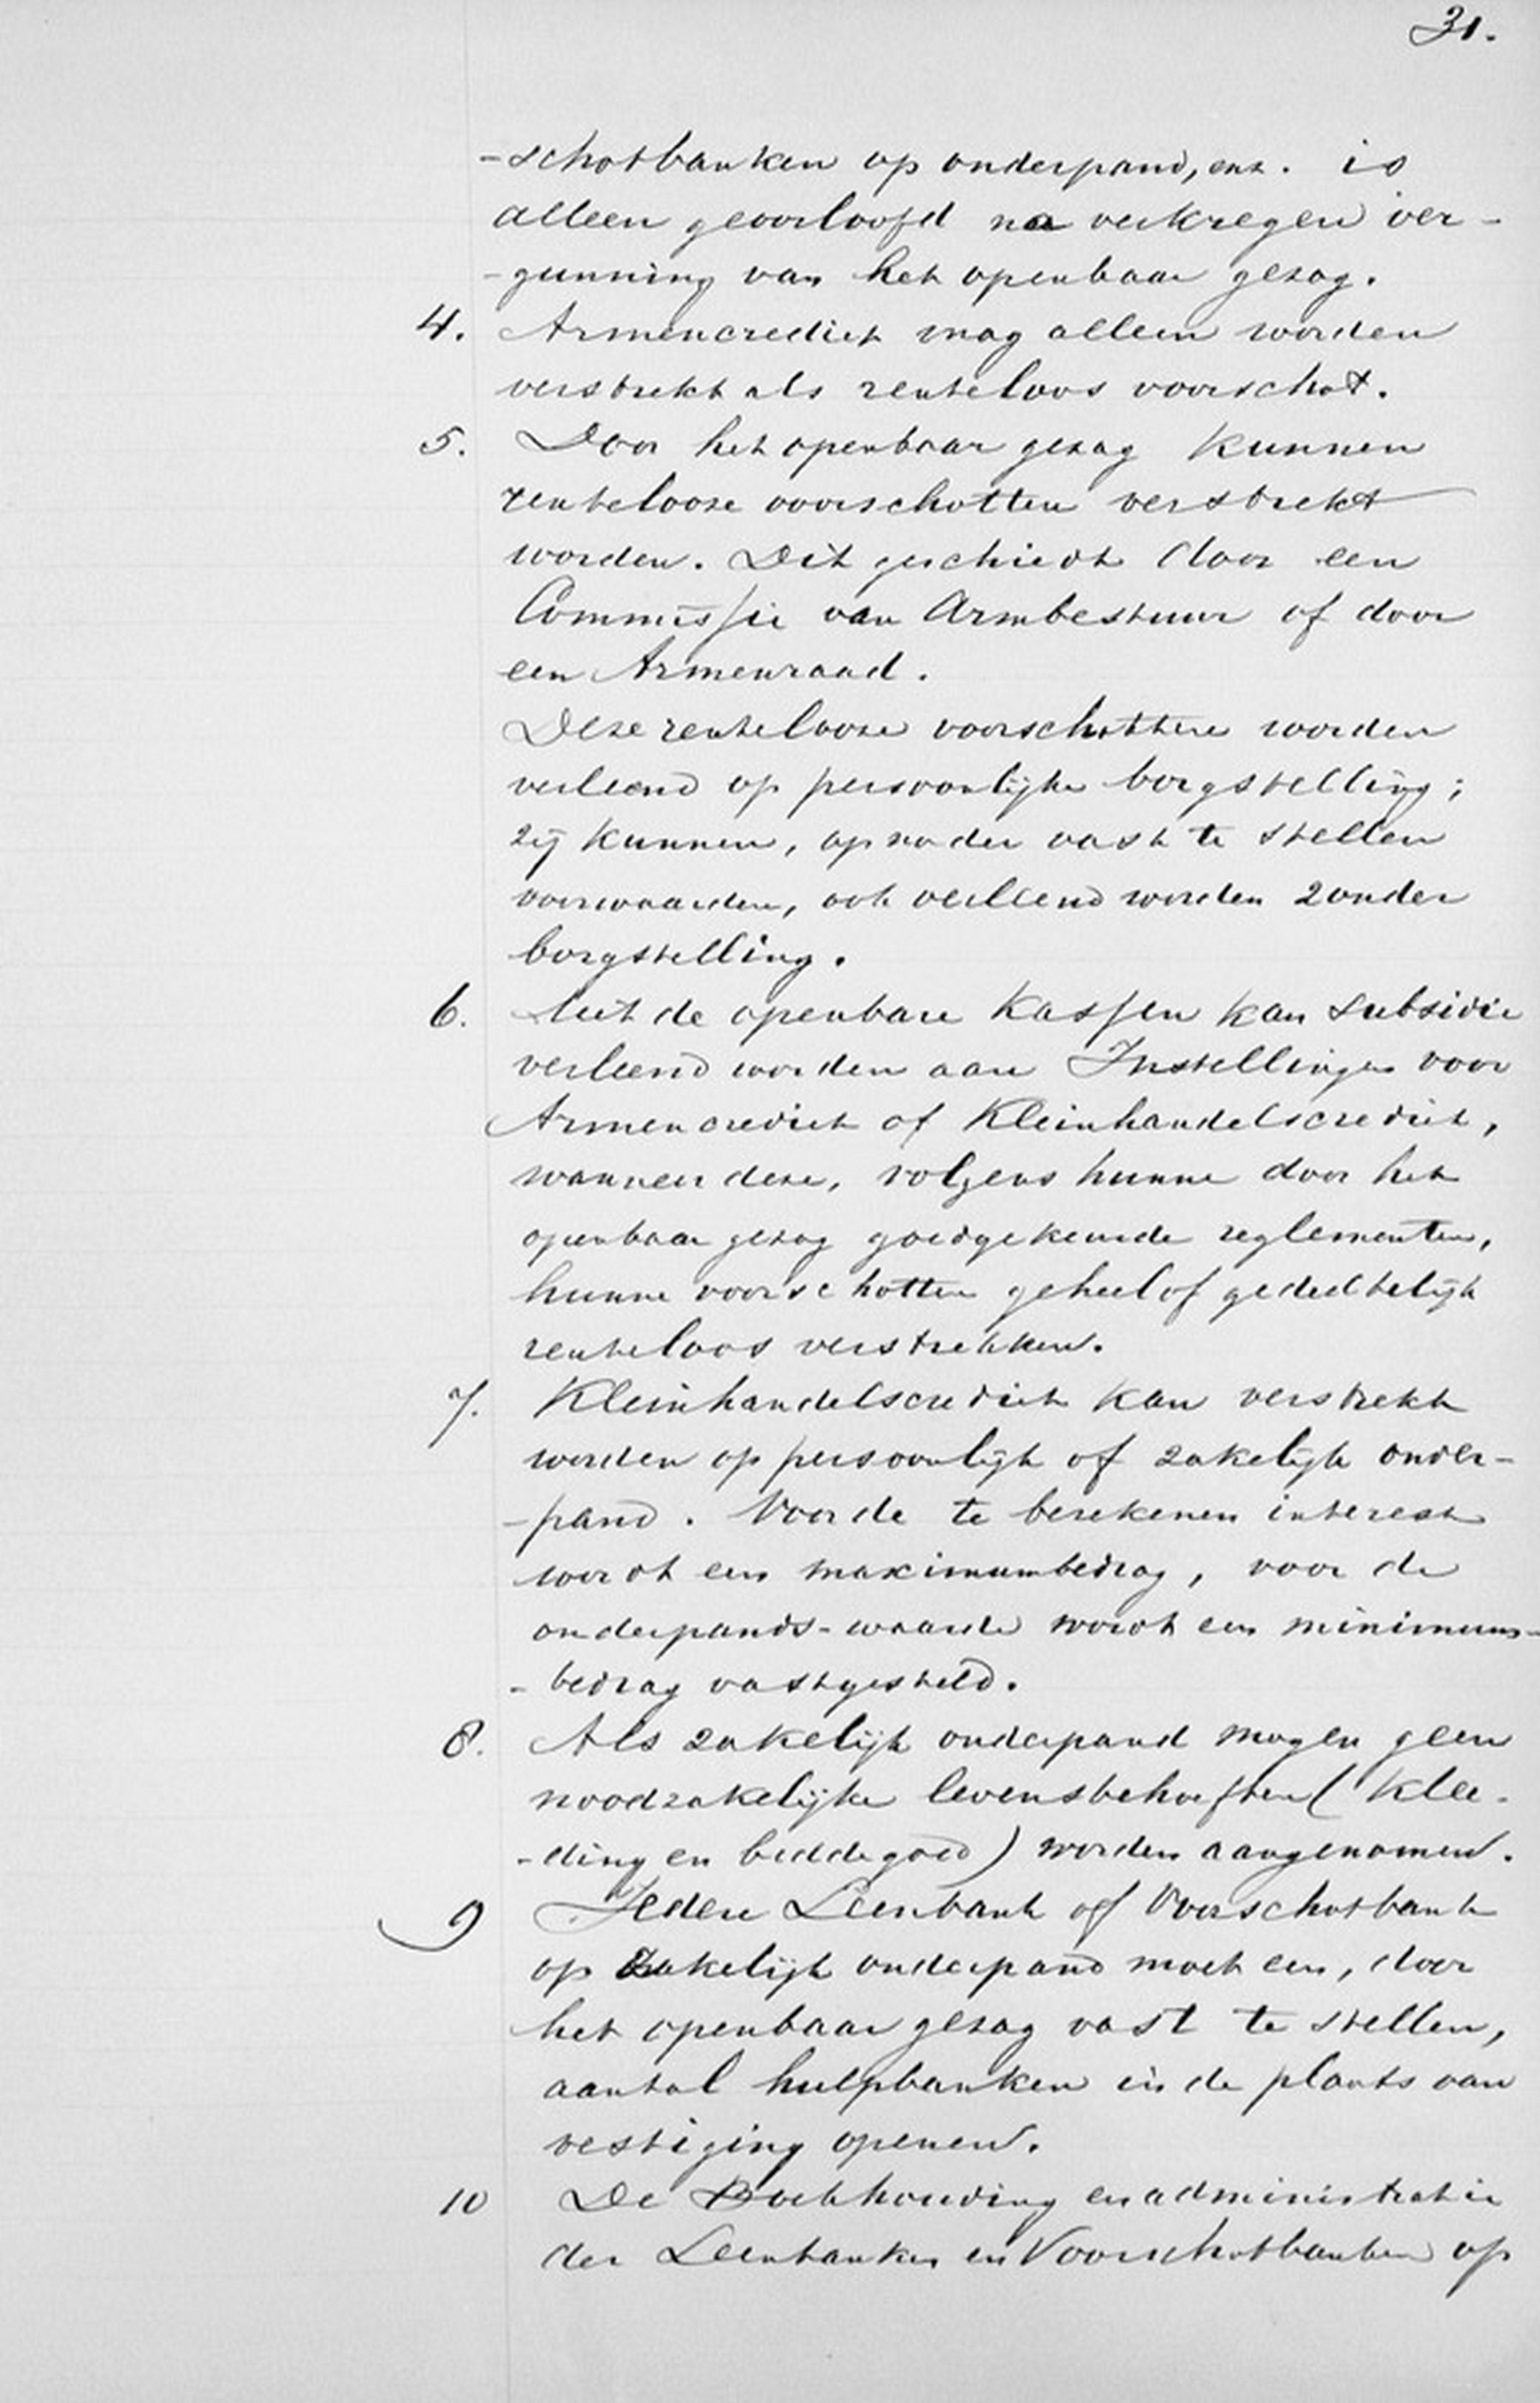 31.
-schotbanken op onderpand, enz. is
alleen geoorloofd na verkregen ver-
-gunning van het openbaar gezag.
4. Armencrediet mag alleen worden
verstrekt als renteloos voorschot.
5. Door het openbaar gezag kunnen
rentelooze voorschotten verstrekt
worden. Dit geschiedt door een
Commissie van Armbestuur of door
een Armenraad.
Deze rentelooze voorschotten worden
verleend op persoonlijke borgstelling;
zij kunnen, op nader vast te stellen
voorwaarden, ook verleend worden zonder
borgstelling.
6. Uit de openbare Kassen kan subsidie
verleend worden aan Instellingen voor
Armencrediet of Kleinhandelscrediet,
wanneer deze, volgens hunne door het
openbaar gezag goedgekeurde reglementen,
hunne voorschotten geheel of gedeeltelijk
renteloos verstrekken.
7. Kleinhandelscrediet kan verstrekt
worden op persoonlijk of zakelijk onder-
-pand. Voor de te berekenen interest
wordt een maximumbedrag, voor de
onderpands-waarde wordt een minimum-
-bedrag vastgesteld.
8. Als zakelijk onderpand mogen geen
noodzakelijke levensbehoeften (klee-
-ding en beddegoed) worden aangenomen.
9 Iedere Leenbank of Voorschotbank
op zakelijk onderpand moet een, door
het openbaar gezag vast te stellen,
aantal hulpbanken in de plaats van
vestiging openen.
10 De Boekhouding en administratie
der Leenbanken en Voorschotbanken op